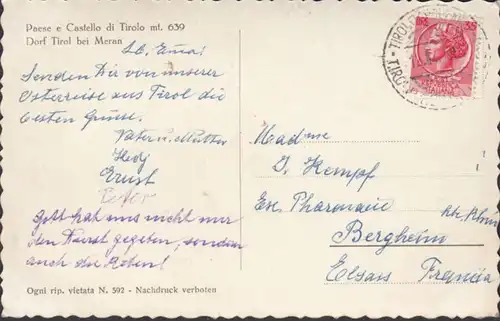 Paese e Castello di Tirolo mt. 639
Dorf Tirol bei Meran
Lb. Erna!
Senden Dir von unserer
Osterreise aus Tirol die
besten Grüsse.
Vater u. Mutter
Hedj
Ernst
Peter
Gott hat uns nicht nur
den Durst gegeben, sondern
auch die Reben!
Ogni rip. vietata N. 592 - Nachdruck verboten
35
TIROL
Madame
J. Kempf
Ex. Pharmacie
Bergheim
Elsass Francia